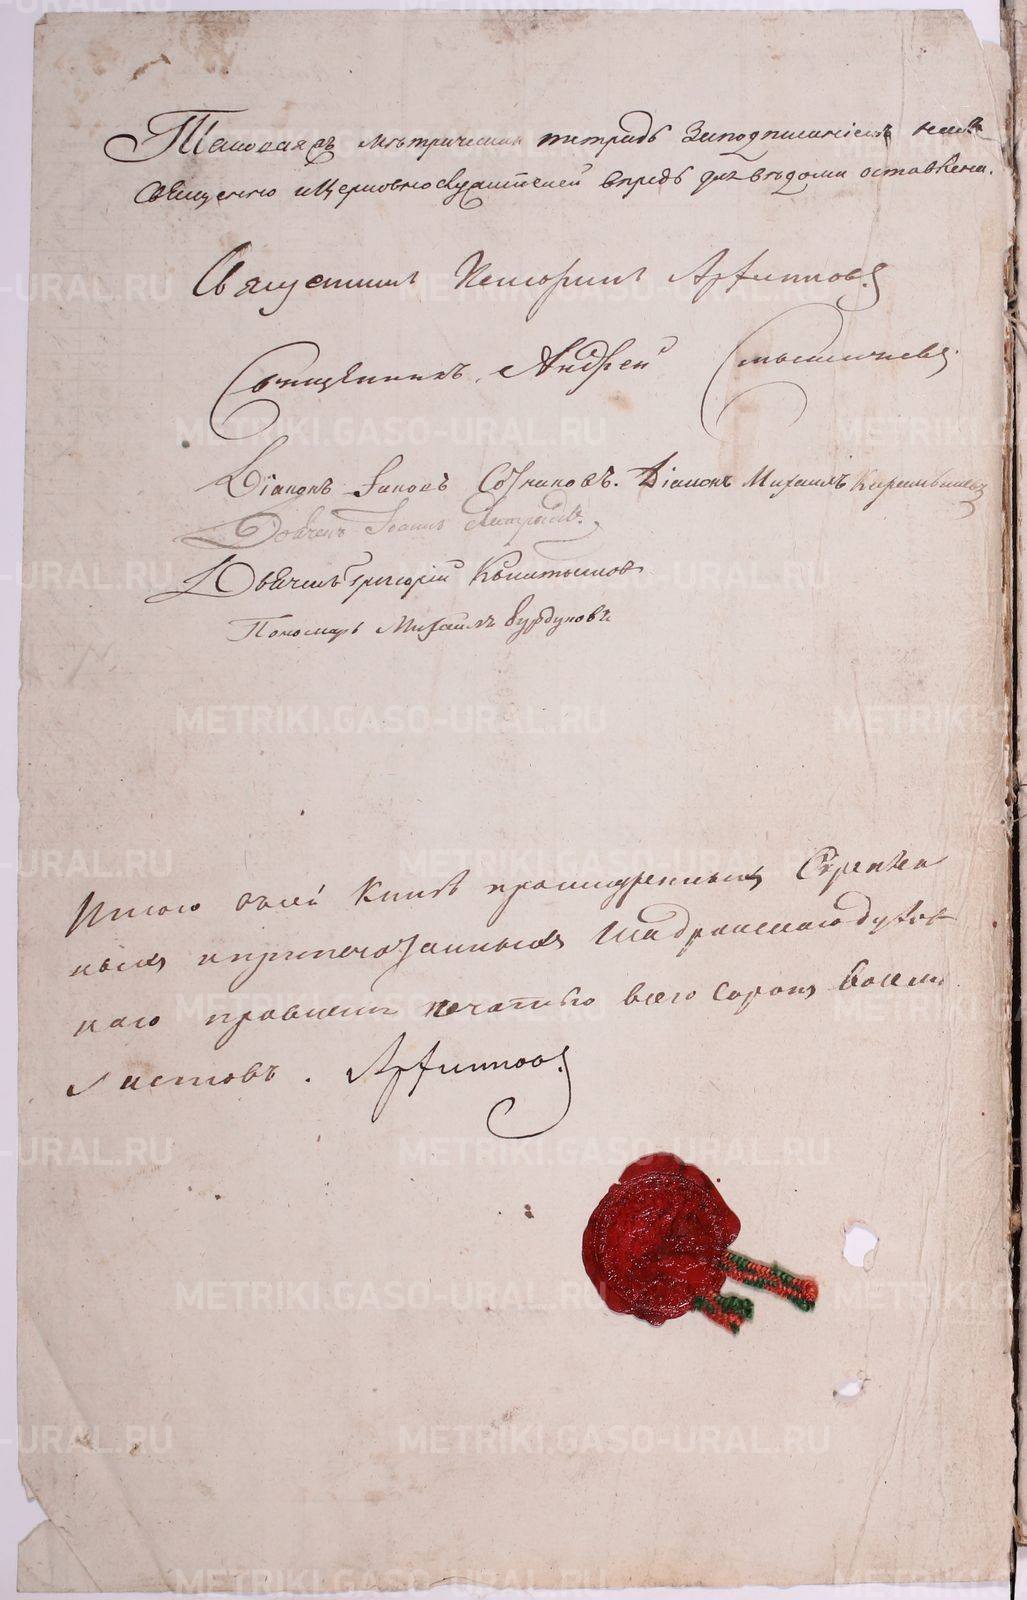 Таковая метрическая тетрадь заподписаніемъ насъ
священно ицерковнослужителей впредь для вѣдома оставлена.
Священникъ Арфиповъ
Священникъ Андрей
Діаконъ Іаковъ Діаконъ Михаилъ
Дьячекъ Іоаннъ
Дьячекъ Григорій
Пономарь Михаилъ Бурдуковъ
Итого всей книгѣ прошнуренныхъ скрѣплен
ныхъ иприпечатанныхъ Шадринскаго духов
наго правленія печатью всего сорокъ восемь
листовъ. Арфиповъ
METRIKI.GASO-URAL.RU